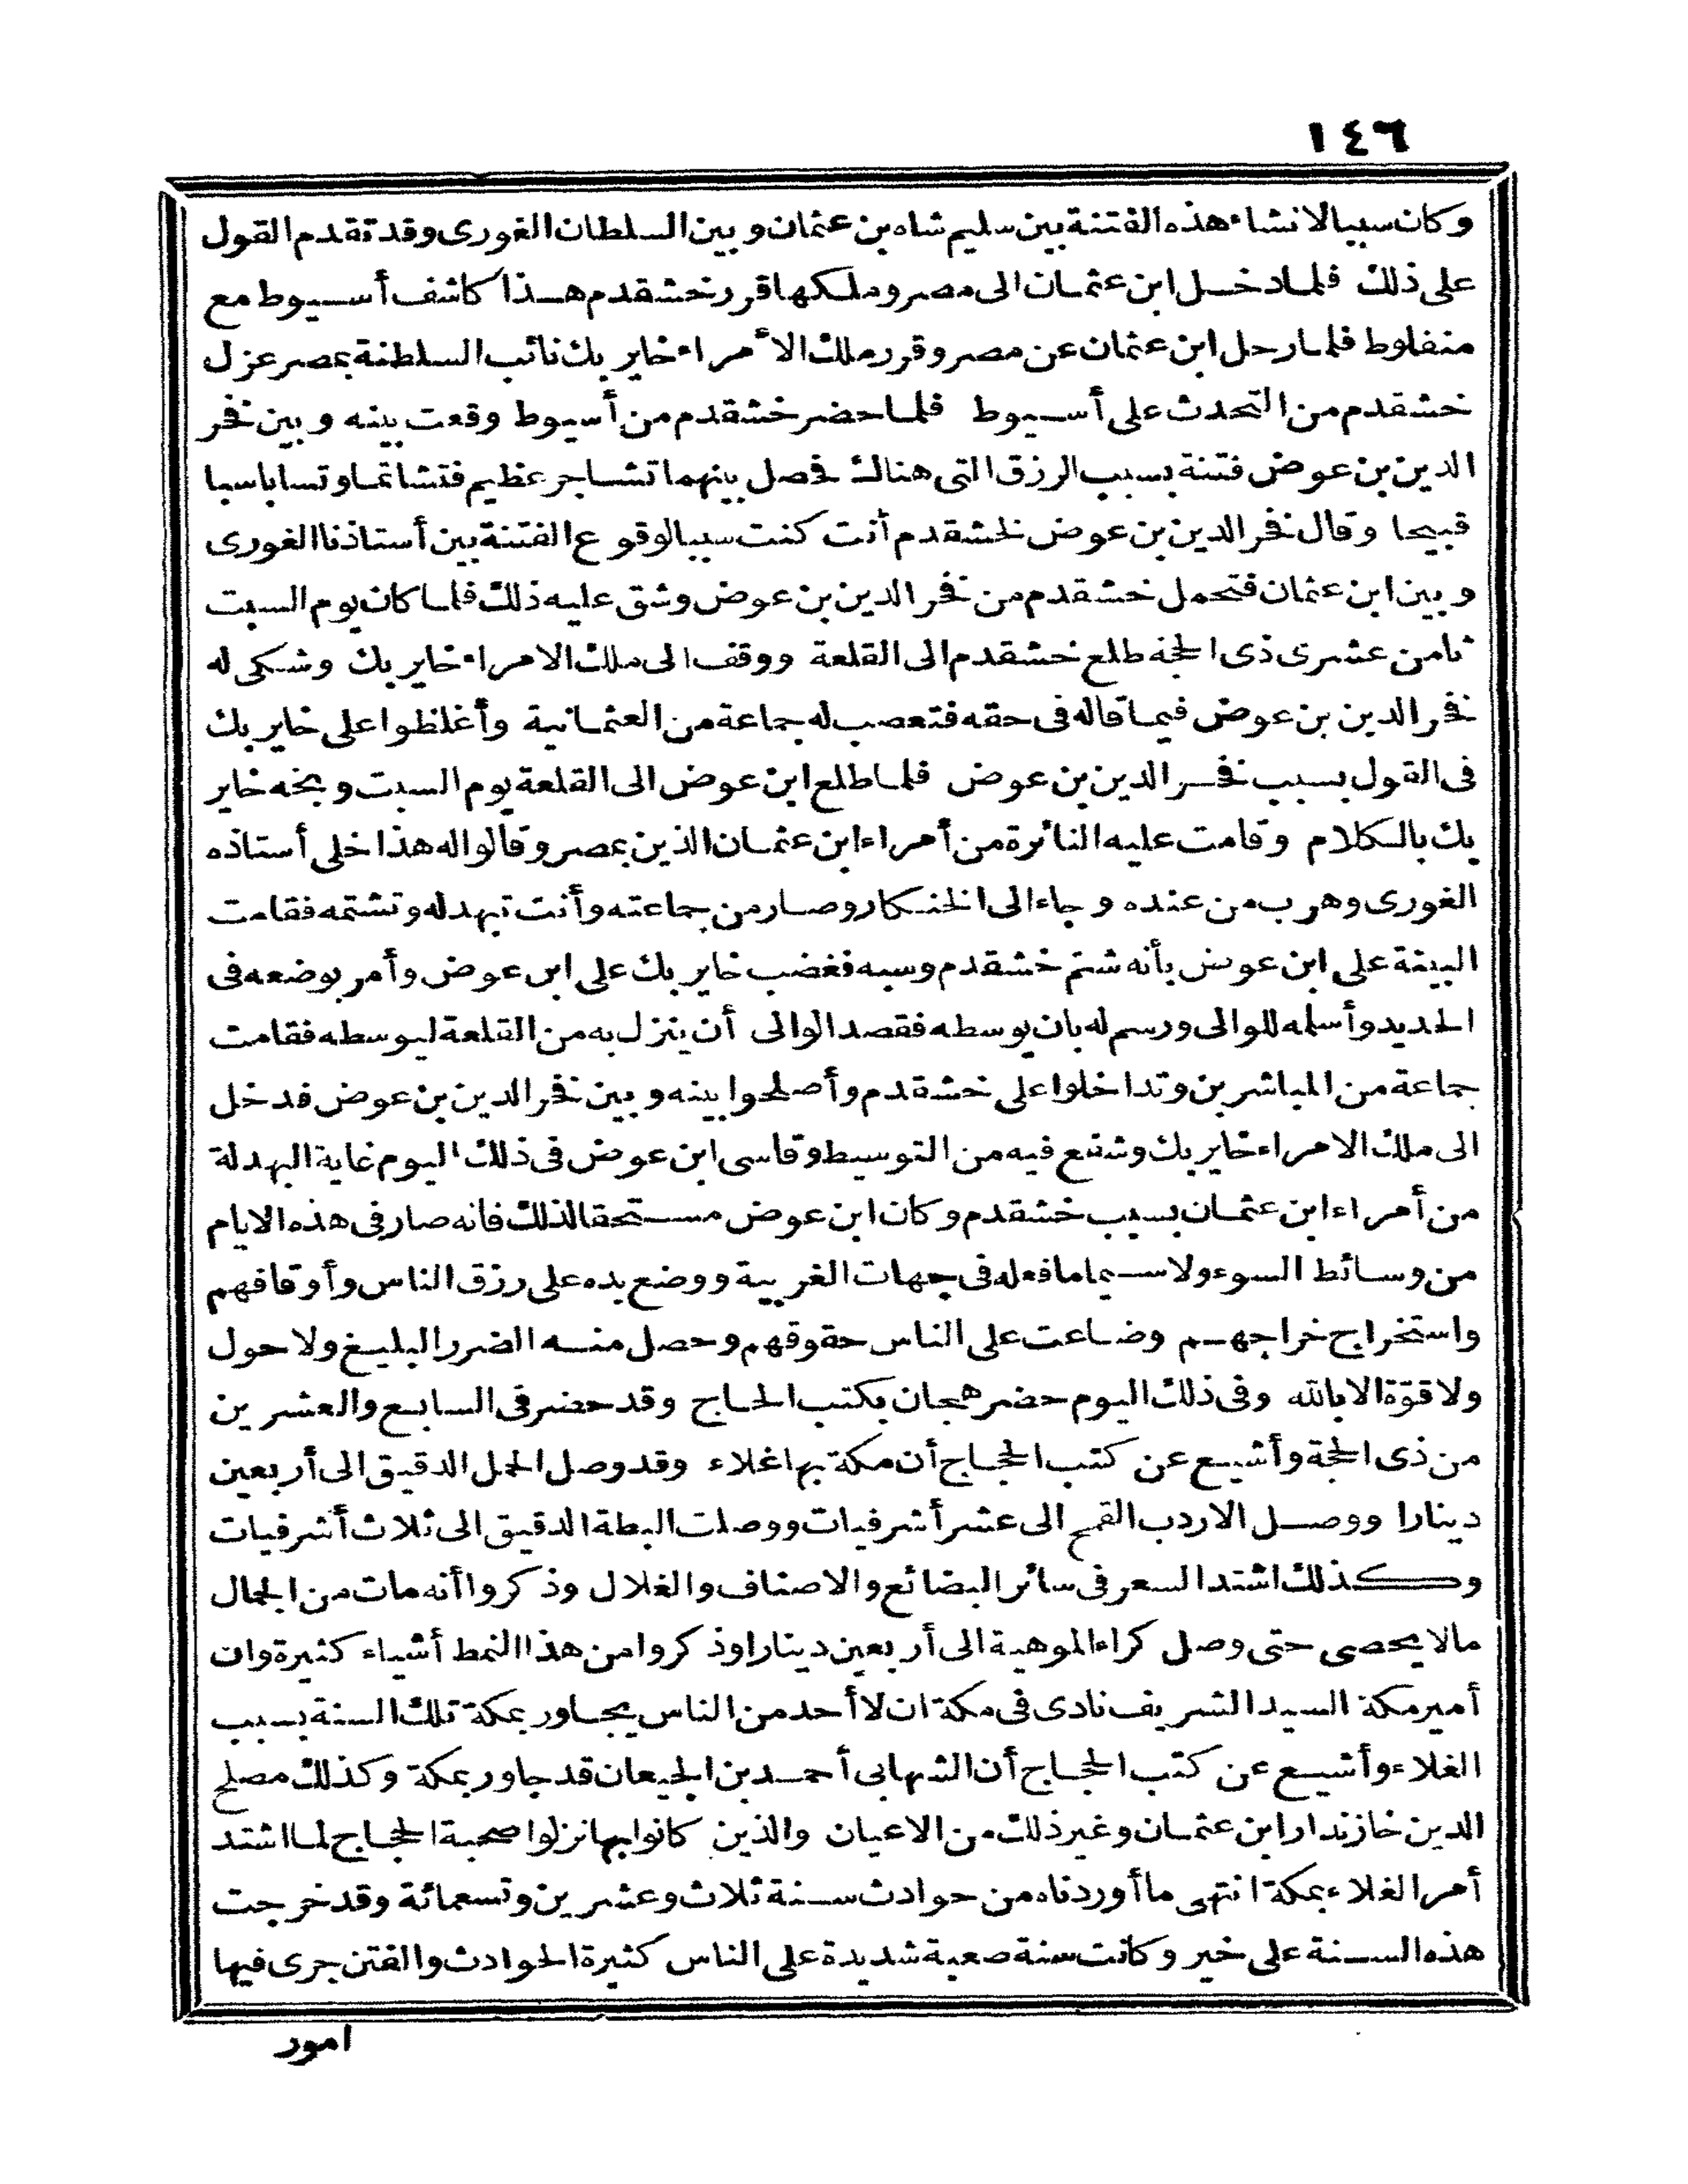 ١٤٦
وكان سببا لانشاء هذه الفتنة بين سليم شاه بن عثمان وبين السلطان الغورى وقد تقدم القول
على ذلك فلما دخل ابن عثمان الى مصر وملكها قرر خشقدم هذا كاشف أسيوط مع
منفلوط فلما رحل ابن عثمان عن مصر وقرر ملك الأمراء خاير بك نائب السلطنة بمصر عزل
خشقدم من التحدث على أسيوط فلما حضر خشقدم من أسيوط وقعت بينه وبين فخر
الدين بن عوض فتنة بسبب الرزق التى هناك فحصل بينهما تشاجر عظيم فتشاتما وتسابا سبا
قبيحا وقال فخر الدين بن عوض لخشقدم أنت كنت سببا لوقوع الفتنة بين أستاذنا الغورى
وبين ابن عثمان فتحمل خشقدم من فخر الدين بن عوض وشق عليه ذلك فلما كان يوم السبت
ثامن عشرى ذى الحجة طلع خشقدم الى القلعة ووقف الى ملك الامراء خاير بك وشكى له
فخر الدين بن عوض فيما قاله فى حقه فتعصب له جماعة من العثمانية وأغلظوا على خاير بك
فى القول بسبب فخر الدين بن عوض فلما طلع ابن عوض الى القلعة يوم السبت وبخه خاير
بك بالكلام وقامت عليه النائرة من أمراء ابن عثمان الذين بمصر وقالوا له هذا خلى أستاذه
الغورى وهرب من عنده وجاء الى الخنكار وصار من جماعته وأنت تبهدله وتشتمه فقامت
البينة على ابن عوض بأنه شتم خشقدم وسبه فغضب خاير بك على ابن عوض وأمر بوضعه فى
الحديد وأسلمه للوالى ورسم له بان يوسطه فقصد الوالى أن ينزل به من القلعة ليوسطه فقامت
جماعة من المباشرين وتداخلوا على خشقدم وأصلحوا بينه وبين فخر الدين بن عوض فدخل
الى ملك الامراء خاير بك وشفع فيه من التوسيط وقاسى ابن عوض فى ذلك اليوم غاية البهدلة
من أمراء ابن عثمان بسبب خشقدم وكان ابن عوض مستحقا لذلك فانه صار فى هذه الايام
من وسائط السوء ولا سيما ما فعله فى جهات الغربية ووضع يده على رزق الناس وأوقافهم
واستخراج خراجهم وضاعت على الناس حقوقهم وحصل منه الضرر البليغ ولا حول
ولا قوّة الا بالله وفى ذلك اليوم حضر هجان بكتب الحاج وقد حضر فى السابع والعشرين
من ذى الحجة وأشيع عن كتب الحجاج أن مكة بها غلاء وقد وصل الحمل الدقيق الى أربعين
دينارا ووصل الاردب القمح الى عشر أشرفيات ووصلت البطة الدقيق الى ثلاث أشرفيات
وكذلك اشتد السعر فى سائر البضائع والاصناف والغلال وذكروا أنه مات من الجمال
مالا يحصى حتى وصل كراء الموهية الى أربعين دينارا وذكروا من هذا النمط أشياء كثيرة وان
أمير مكة السيد الشريف نادى فى مكة ان لا أحد من الناس يجاور بمكة تلك السنة بسبب
الغلاء وأشيع عن كتب الحجاج أن الشهابى أحمد بن الجيعان قد جاور بمكة وكذلك مصلح
الدين خازندار ابن عثمان وغير ذلك من الاعيان والذين كانوا بها نزلوا صحبة الحجاج لما اشتد
أمر الغلاء بمكة انتهى ما أوردناه من حوادث سنة ثلاث وعشرين وتسعمائة وقد خرجت
هذه السنة على خير وكانت سنة صعبة شديدة على الناس كثيرة الحوادث والفتن جرى فيها
امور